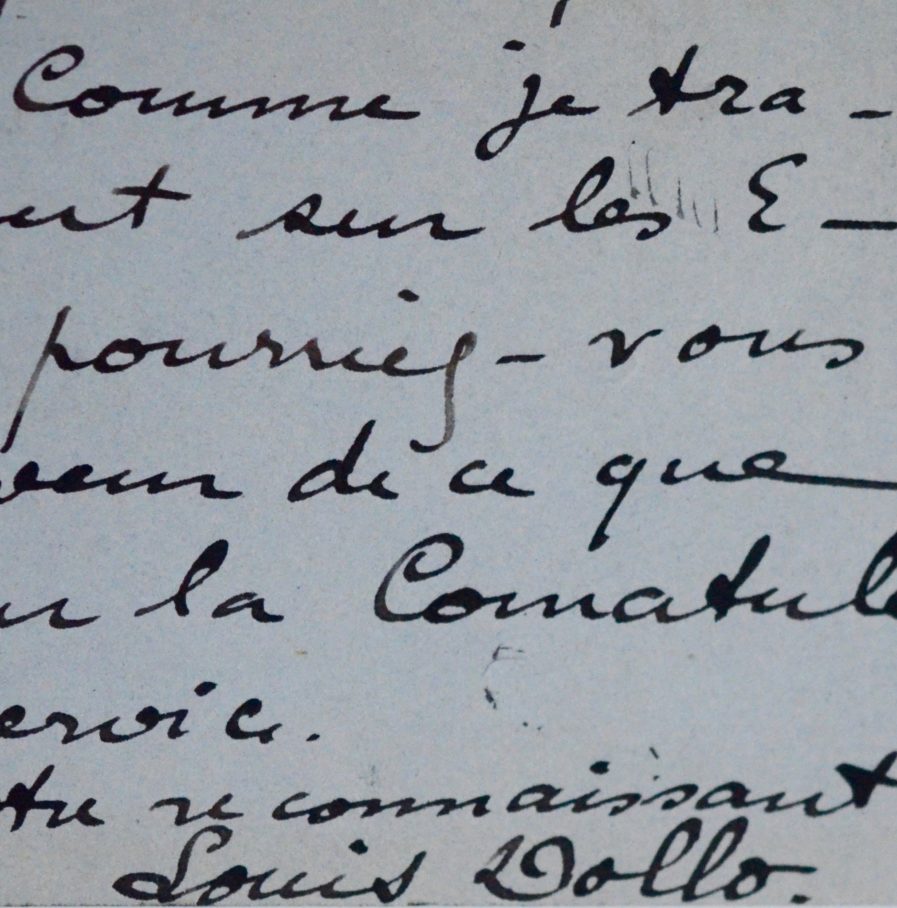 Comme je tra-
sur les E-
pourriez-vous
de ce que
la Comatule
ervice.
tre reconnaissant
Louis Dollo.